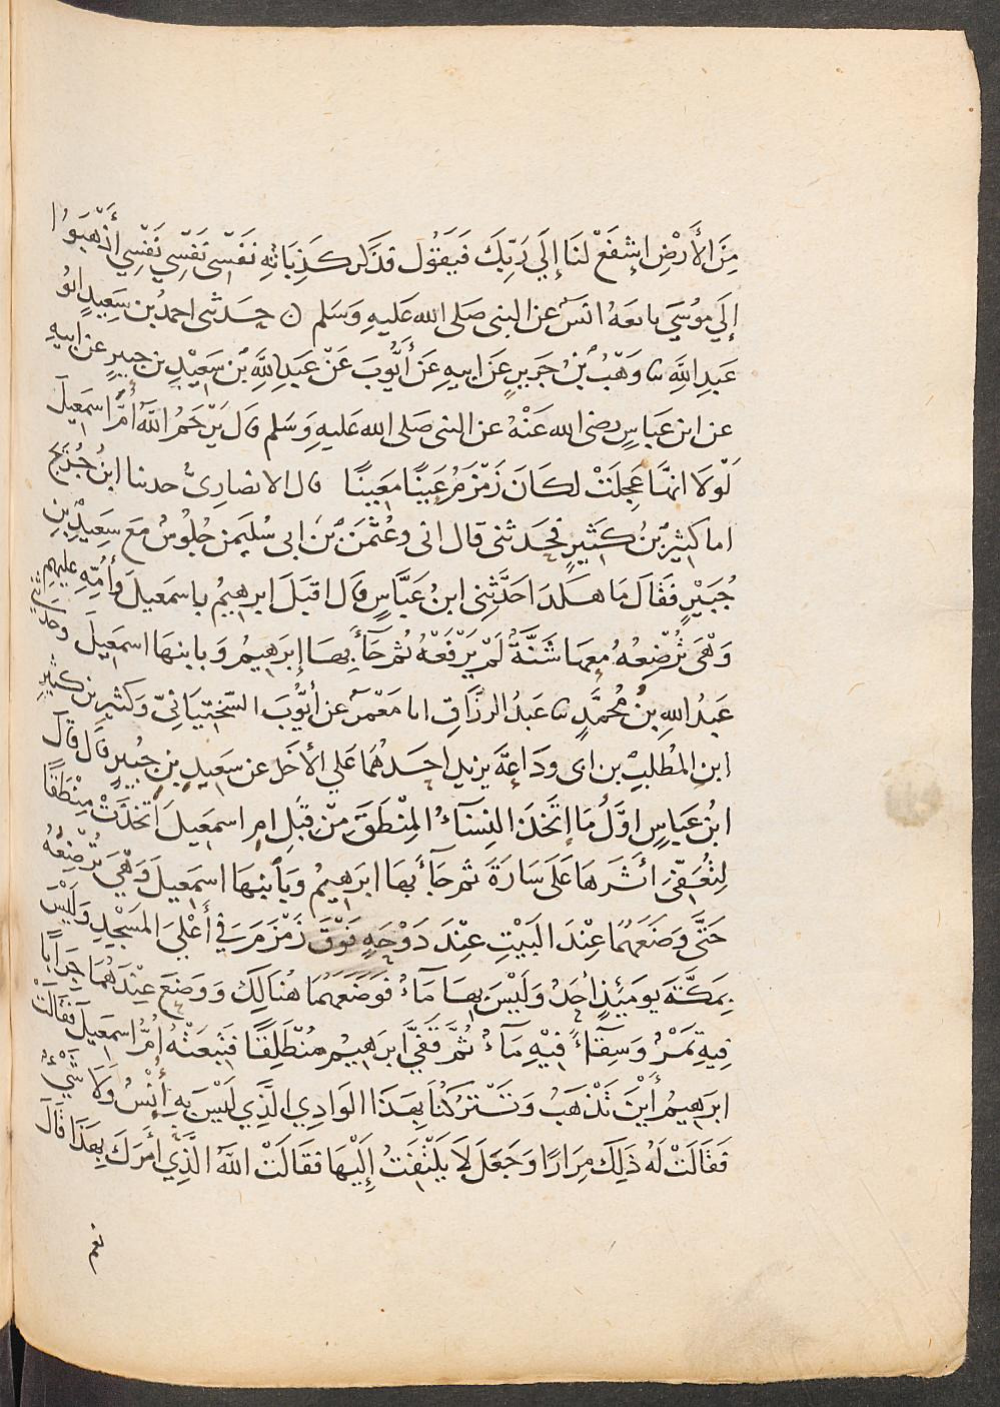 مِنَ الأَرْضِ إشفَعْ لنَا إلَي رَبِّكَ فَيَقوُل فذَكر كَذِبَاتِهِ نَفسْي نَفسْي نَفْسِي أذْهَبُوا
إلَي مُوسَي تابعَهُ انَس عن النبى صَلى الله عَليهِ وَسَلم ۞ حَدثنى احمدُ بن سَعِيدٍ ابوُ
عَبدِ اللَّهِ ثنا وَهْبُ بْنُ جَرِيرٍ عَن ابيهِ عَن أيُّوبَ عَنْ عَبدِ اللَّهِ بْن سَعِيْدِ بن جبيرٍ عن ابيهِ
عن ابن عَباسٍ رضى الله عَنْهُ عن النبى صَلى الله عَليهِ وَسَلم قال يَرْحَمُ اللَّهُ أمَّ اسمَعِيلَ
لَوْلَا انهَّا عَجِلَتْ لكَانَ زَمْزَمُ عَيْنًا مَعِينًا قال الانصَارِىُّ حدثنا ابنُ جُرَيج
اما كَثِيرُ بْنُ كَثِيرٍ فحَدثنى قال انى وعُثمٰنَ بْنَ ابى سُليمٰن جُلوُسٌ مَعَ سَعِيدِ بنِ
جُبَيْرٍ فَقَالَ مَا هٰكَذا حَدَّثنِى ابنُ عَبَّاسٍ قال اقبَلَ ابرهِيمُ باسمَعيلَ وأُمِّهِ عليهم
وَهْىَ تُرْضِعهُ مَعهَا شَنَّةٌ لَمْ يَرْفَعْهُ ثمَّ جَآءَ بِهَا إبرَهِيمُ وَبابنهَا اسمَعِيلَ وحَدثنى
عَبدُ اللهِ بنُ مُحمَّدٍ ثنا عَبدُ الرزَّاقِ انا مَعْمَرٌ عن أيُّوُبَ السّختِيَانِيّ وَكثيرِ بن كَثيرِ
ابنِ المُطلِبِ بن ابى ودَاعَةَ يزيد احَدهُمَا عَلَي الأخَر عن سَعِيدِ بنِ جُبيرٍ قال قالَ
ابنُ عَباسٍ اوَّلُ مَا إتَّخذَ النِسَآءُ المِنْطَقَ مِنْ قِبَلِ امِ اسمَعِيلَ اتَّخذَتْ مِنْطَقًا
لِتُعَفّيَ أثَرهَا عَلَي سَارَةَ ثم جَآءَ بهَا ابرَهِيمُ وَبِابنهَا اسمَعِيلَ وَهِْيَ تُرْضِعُهُ
حَتَّي وَضَعَهُمَا عِنْدَ البَيْتِ عِنْدَ دَوْحَةٍ فَوْقَ زَمْزَمَ فِي أَعْلَي المَسْجِدِ وَليْسَ
بِمَكَّةَ يومَئِذٍ أحَدٌ وَليْسَ بِهَا مَآءٌ فَوَضَعَهُمَا هُنَالِكَ وَوَضَعَ عِنْدَهُمَا جِرَابًا
فِيهِ تَمْرٌ وَسِقَآءً فِيْهِ مَآءٌ ثُمَّ قَفَّيَ ابرَهِيمُ مُنْطَلِقًا فتَبِعَتْهُ أُمُّ اسمَعِيلَ فَقَالَتْ
ابرَهِيمُ أَيْنَ تَذْهَبُ وَتَتْرُكُنَا بِهَذَا الوَادِي الَّذِي لَيْسَ بِهِ إِنْسٌ وَلَا شَيْءٌ
فَقَالَتْ لَهُ ذَلِكَ مِرَارًا وَجَعَلَ لَا يَلْتَفِتُ إِلَيْهَا فقَالَتْ اللَّهُ الَّذِي أَمَرَكَ بِهَذَا قَالَ
نعم